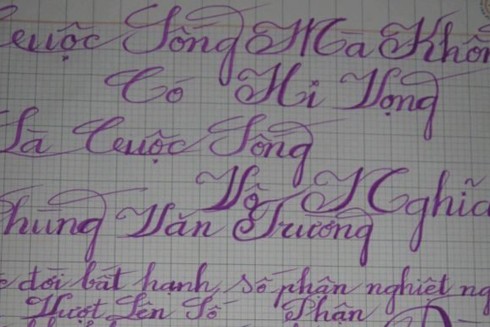 Cuộc Sống Mà Khôn
Có Hi Vọng
Là Cuộc Sống
Vô Nghĩa
Phung Văn Trường
đời bất hạnh, số phận nghiệt ng
Vượt Lên Số Phận